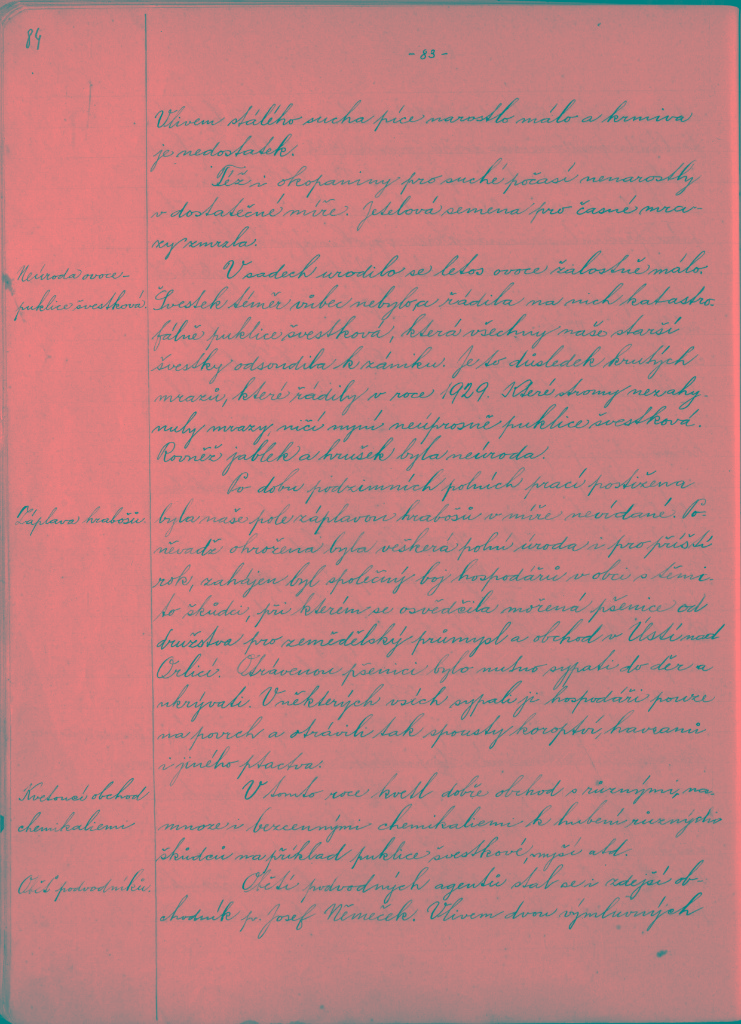 84
- 83 -
Vlivem stálého sucha píce narostlo málo a krmiva
je nedostatek.
Též i okopaniny pro suché počasí nenarostly
v dostatečné míře. Jetelová semena pro časné mra-
zy zmrela.
Neúroda ovoce -
puklice švestková.
V sadech urodilo se letos ovoce žalostně málo.
Švestek téměř vůbec nebylo, a řádila na nich katastro-
fálně puklice švestková, která všechny naše starší
švestky odsoudila k zániku. Je to důsledek krutých
mrazů, které řádily v roce 1929. Které stromy nezahy-
nuly mrazy ničí nyní neúprosně puklice švestková.
Rovněž jablek a hrušek byla neúroda.
Záplava hrabošů.
Po dobu podzimních polních prací postižena
byla naše pole záplavou hrabošů v míře nevídané. Po-
něvadž ohrožena byla veškerá polní úroda i pro příští
rok, zahájen byl společný boj hospodářů v obci s těmi-
to škůdci, při kterém se osvědčila mořená pšenice od
družstva pro zemědělský průmysl a obchod v Ústí nad
Orlicí. Otrávenou pšenici bylo nutno sypati do děr a
ukrývati. V některých vsích sypali ji hospodáři pouze
na povrch a otrávili tak spousty koroptví, havranů
i jiného ptactva.
Kvetoucí obchod
chemikaliemi
V tomto roce kvetl dobře obchod s různými, na-
mnoze i bezcennými chemikaliemi k hubení různých
škůdců na příklad puklice švestkové, myší atd.
Oběť podvodníků.
Obětí podvodných agentů stal se i zdejší ob-
chodník p. Josef Němeček. Vlivem dvou výmluvných